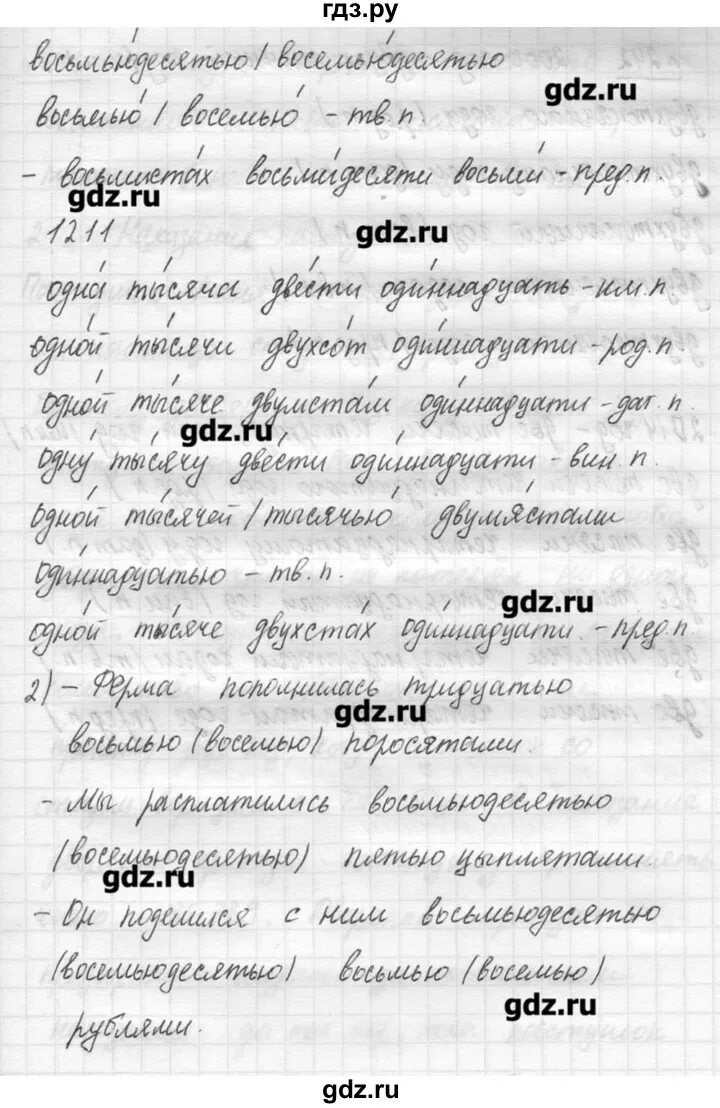 гдз.ру
восьмью́десятью / восемью́десятью
gdz.ru
восьмью́ / восемью́ - тв. п.
- восьмиста́х восьми́десяти восьми́ - пред. п.
gdz.ru
1211
gdz.ru
одна́ ты́сяча две́сти оди́ннадцать - им. п.
одно́й ты́сячи двухсо́т оди́ннадцати - род. п.
одно́й ты́сяче двумста́м оди́ннадцати - дат. п.
gdz.ru
одну́ ты́сячу две́сти оди́ннадцати - вин. п.
одно́й ты́сячей / тысячью́ двумя́стами
оди́ннадцатью - тв. п.
gdz.ru
одно́й ты́сяче двухста́х оди́ннадцати. - пред. п
2) - Ферма пополнилась тридцатью
gdz.ru
восьмью (восемью) поросятами.
- Мы расплатились восьмьюдесятью
(восемьюдесятью) пятью цыплятами.
gdz.ru
- Он поделился с ним восьмьюдесятью
(восемьюдесятью) восьмью (восемью)
gdz.ru
рублями.
gdz.ru